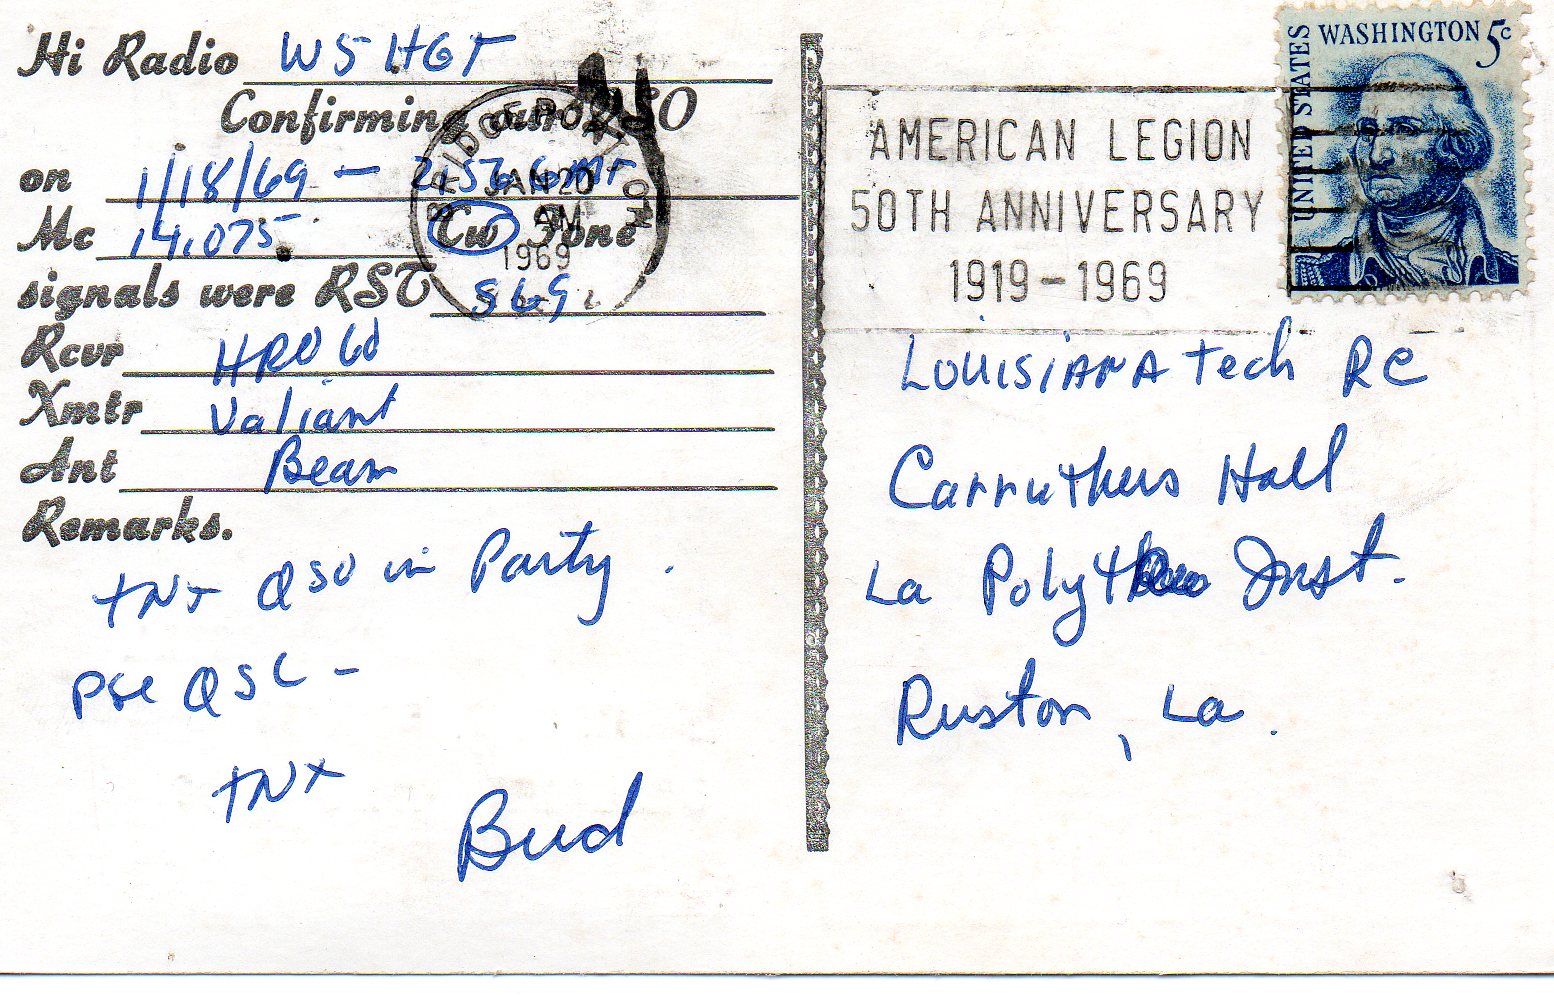 Hi Radio W5HGT
Confirming our QSO
on 1/18/69 – 2156 GMT
Mc 14.075 Cw Fone
signals were RST 569
Rcvr HRO 60
Xmtr Valiant
Ant Beam
Remarks.
TNX QSO in Party.
PSE QSL –
TNX
Bud
BRIDGEPORT
JAN 20
AM
1969
AMERICAN LEGION
50TH ANNIVERSARY
1919-1969
UNITED STATES
WASHINGTON 5c
LOUISIANA Tech RC
Carruthers Hall
La Poly Inst.
Ruston, La.